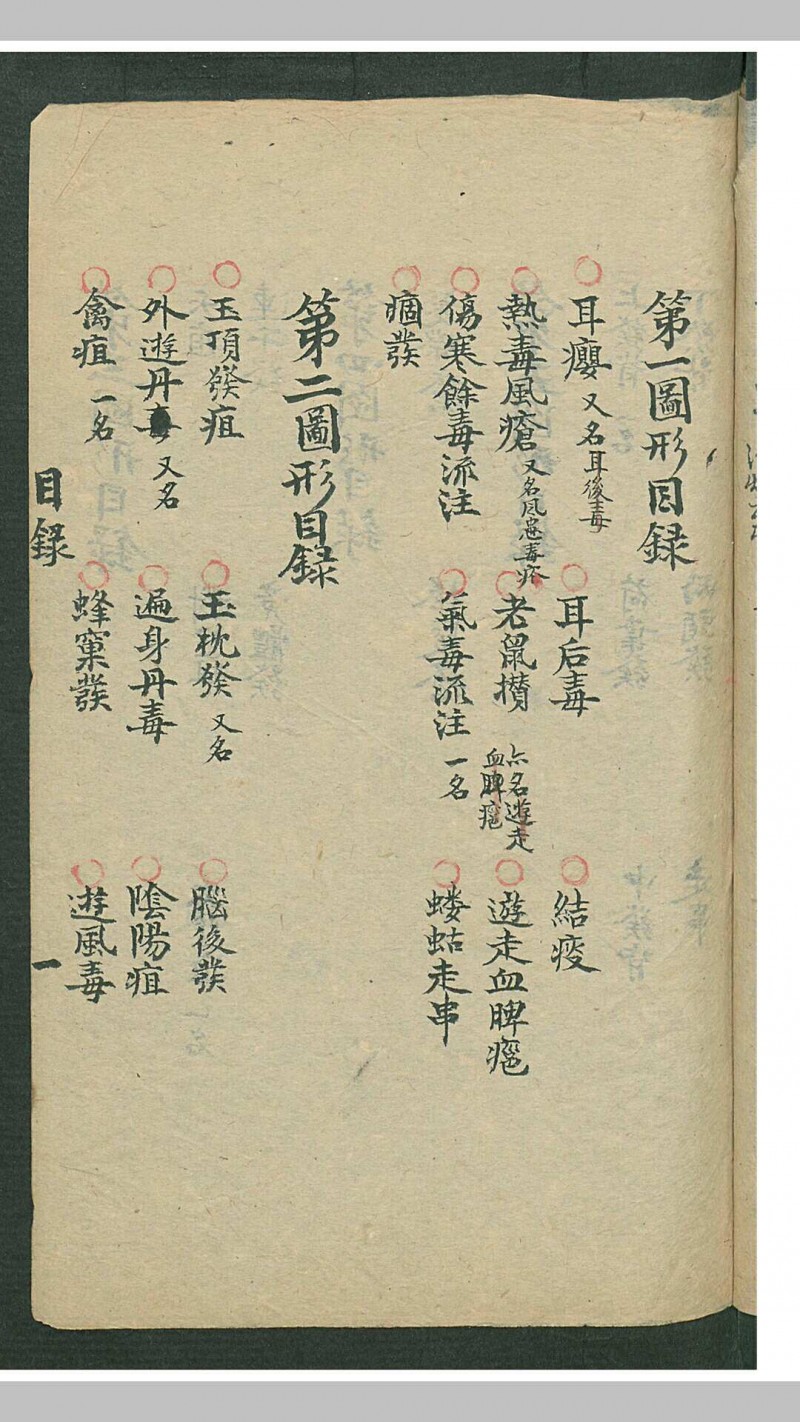 第一圖形目録
耳癭 又名耳後毒 耳后毒 結疫
熱毒風瘡 又名風毒 老鼠攅 六名遊走血脾瘢 遊走血脾瘢
傷寒餘毒流注 氣毒流注 一名 蝼蛄走串
痼發
第二圖形目録
玉頂發疽 玉枕發 又名 腦後發
外遊丹毒 又名 遍身丹毒 陰陽疽
禽疽 一名 蜂窠發 遊風毒
目録 一